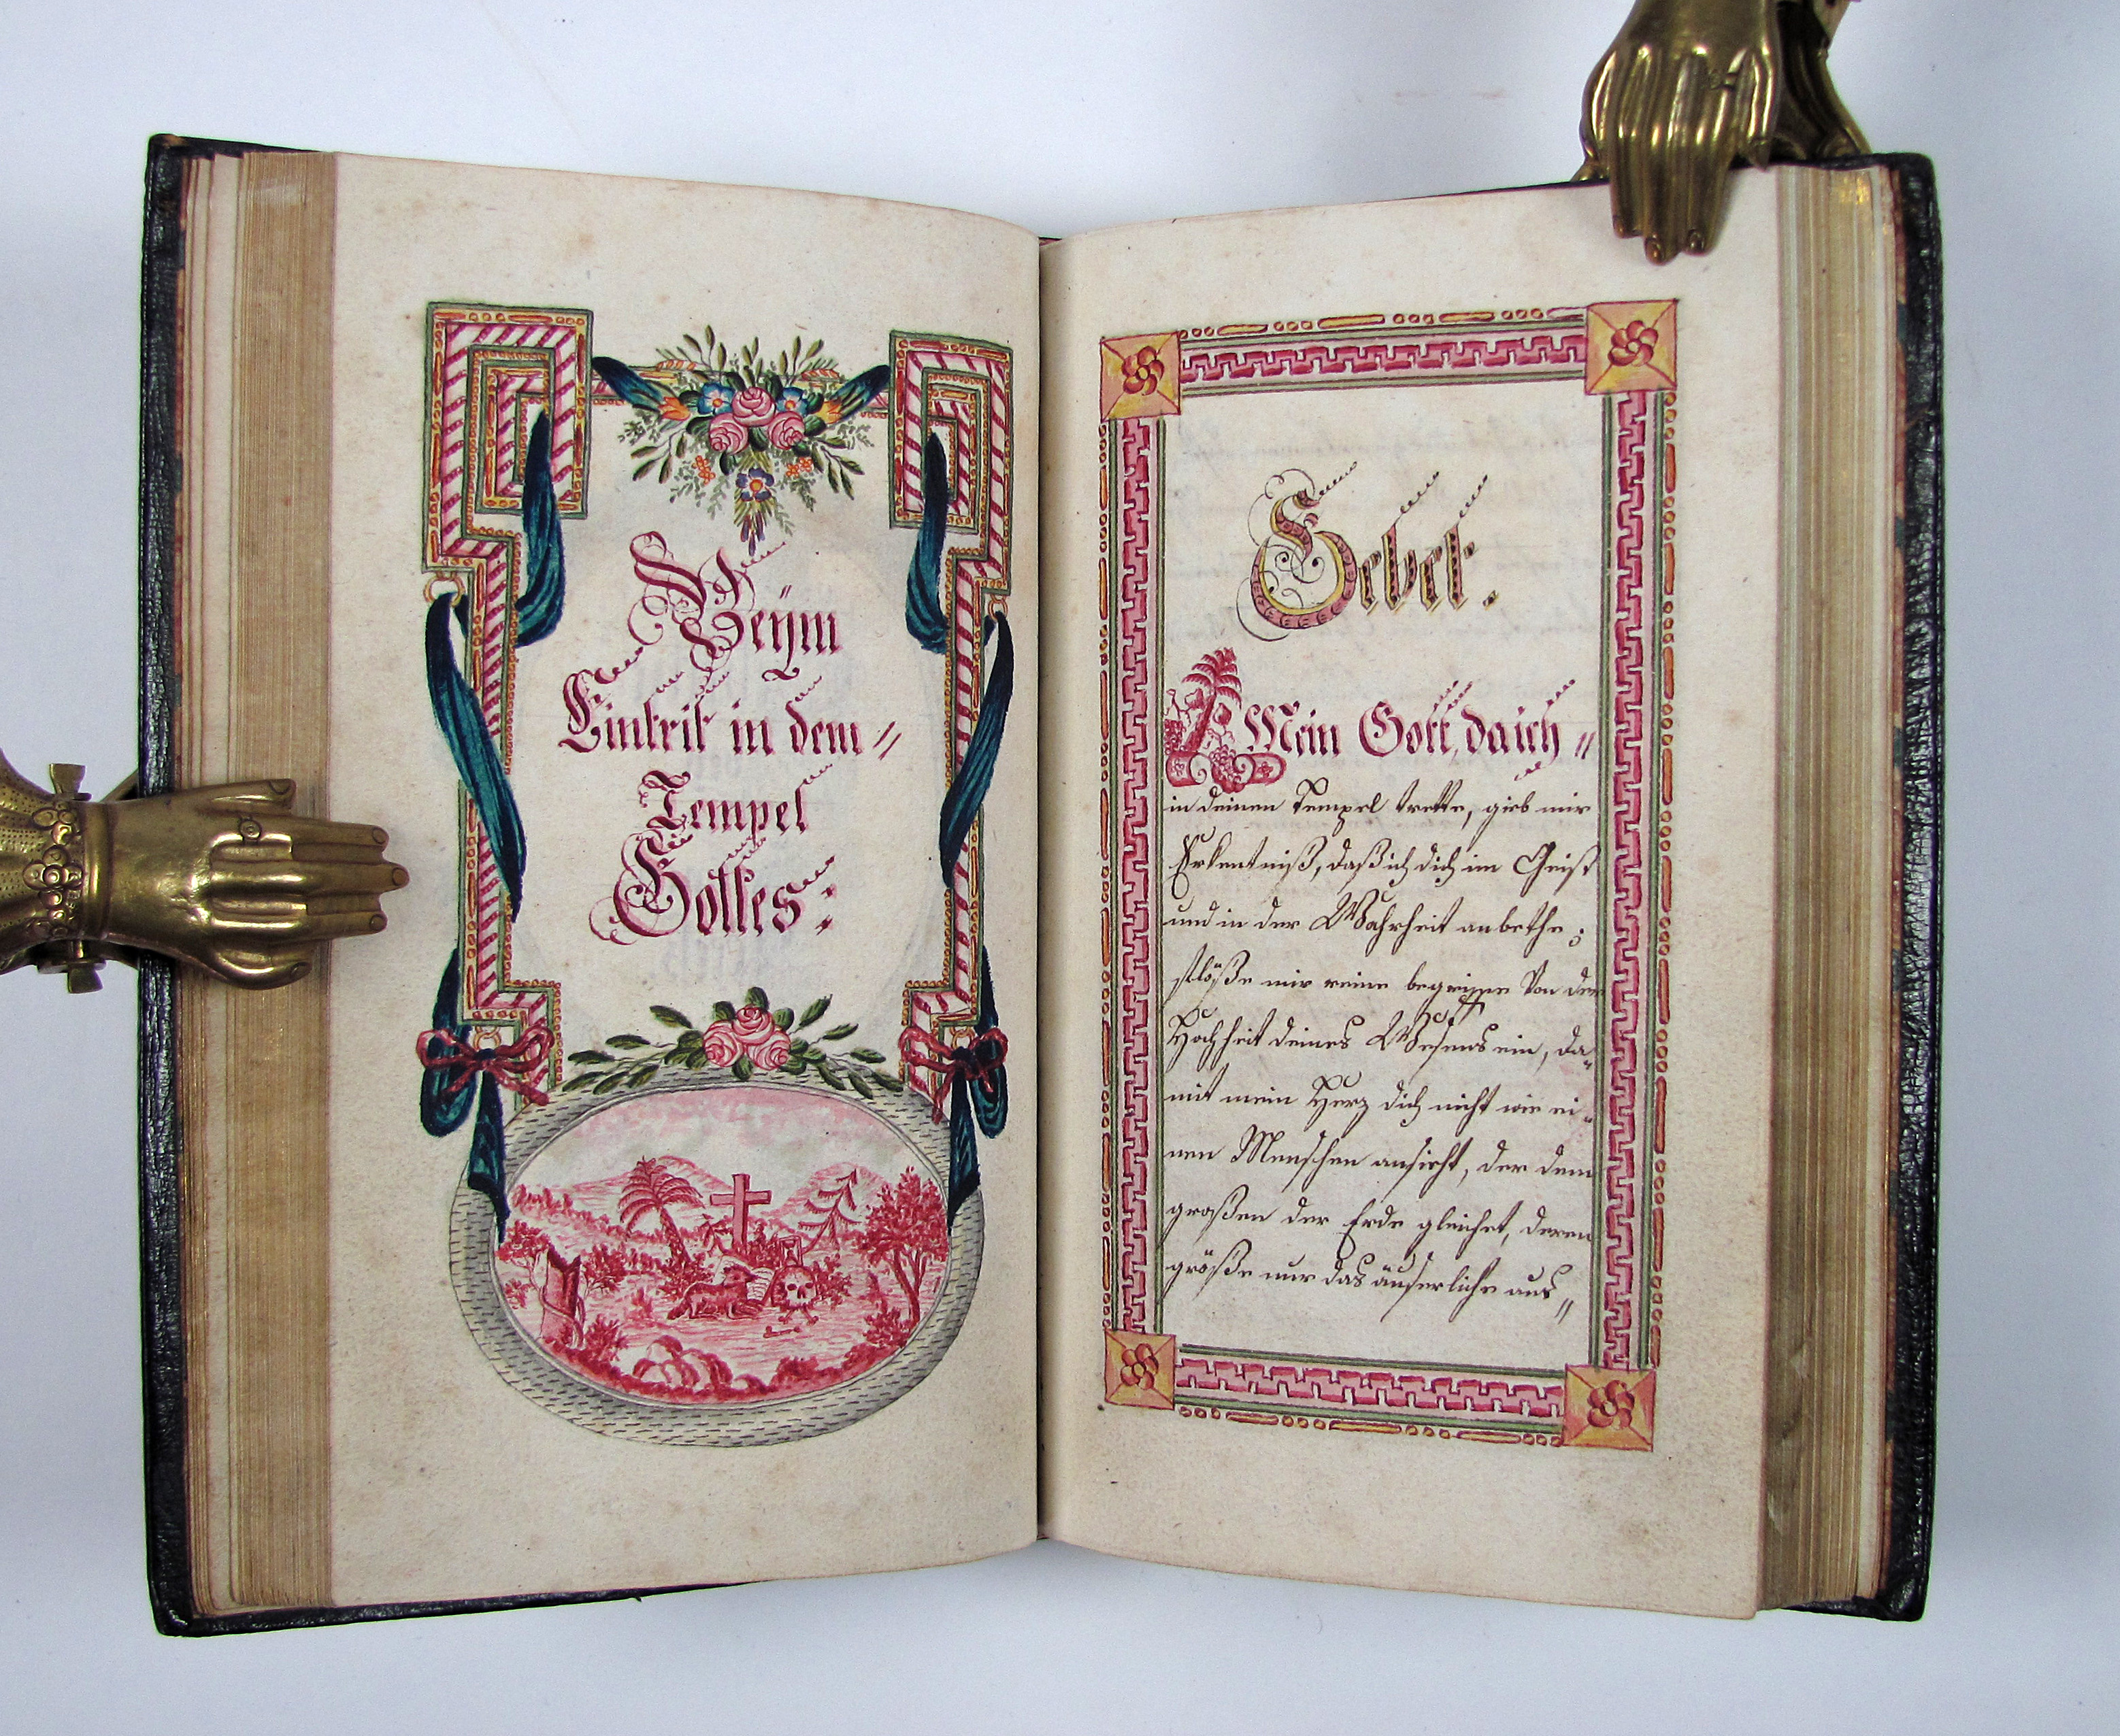 Beÿm
Eintrit in dem =
Tempel
Gottes:
Gebet.
Mein Gott, da ich =
in deinen Tempel trette, gieb mir
Erkentniß, daß ich dich im Geist
und in der Wahrheit anbethe;
flöße mir reine begriffe Von der
Hochheit deines Wesens ein, da=
mit mein Herz dich nicht wie ei=
nen Menschen ansieht, der dem
großen der Erde gleichet, deren
größe nur das äuserliche aus=